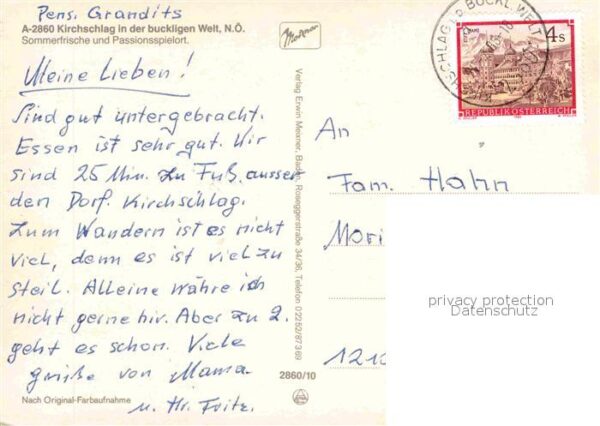 Pens. Grandits
A-2860 Kirchschlag in der buckligen Welt, N.Ö.
Sommerfrische und Passionsspielort.
Meine Lieben!
Sind gut untergebracht.
Essen ist sehr gut. Wir
sind 25 Min. zu Fuß ausser
den Dorf. Kirchschlag.
Zum Wandern ist es nicht
viel, denn es ist viel zu
steil. Alleine währe ich
nicht gerne hir. Aber zu 2.
geht es schon. Viele
grüße von Mama
u. Hr. Fritz.
Nach Original-Farbaufnahme
2860/10
Verlag Erwin Meixner, Baden, Roseggerstraße 34/36, Telefon 02252/87369
4s
REPUBLIK ÖSTERREICH
An
Fam. Hahn
1210
privacy protection
Datenschutz